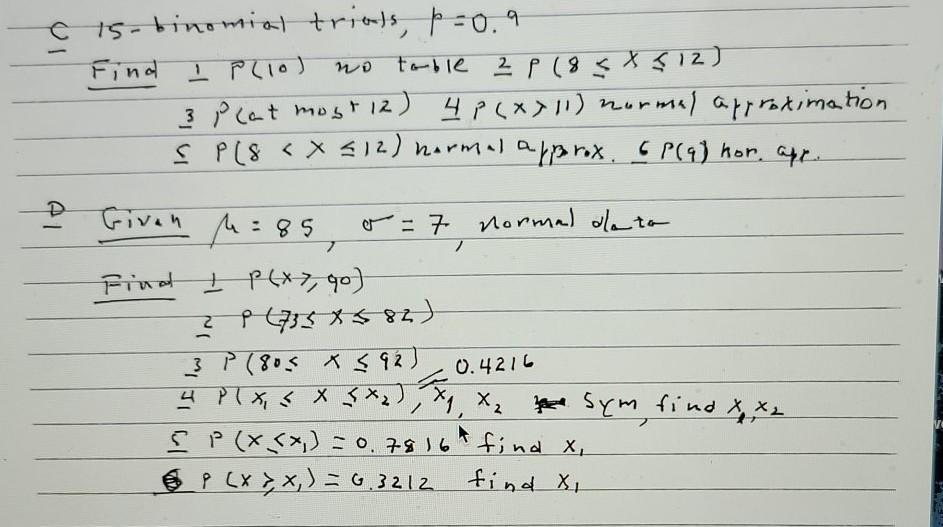 C 15-binomial trials, p=0.9
Find 1 P(10) no table 2 P(8 ≤ X ≤ 12)
3 P(at most 12) 4 P(X > 11) normal approximation
5 P(8 < X ≤ 12) normal approx. 6 P(9) nor. apr.
D Given μ = 85, σ = 7, normal data
Find 1 P(X ≥ 90)
2 P(73 ≤ X ≤ 82)
3 P(80 ≤ X ≤ 92)
4 P(x₁ ≤ X ≤ x₂) = 0.4216, x₁, x₂ sym, find x₁, x₂
5 P(X ≤ x₁) = 0.7816 find x₁
6 P(X ≥ x₁) = 0.3212 find x₁